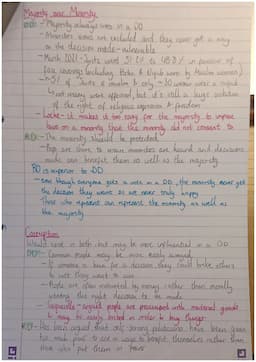 Majority over Minority
DD: - Majority always wins in a DD
- Minorities voices are excluded and they never get a say
on the decision made - vulnerable
- March 2021 - Swiss were 51.2% to 48.8% in favour of
face coverings (including Burka & Niqab worn by Muslim women)
- 5% of Swiss is muslim & only ~30 women wear a niqab
↳ not many were affected, but it's still a huge violation
of the right of religious expression & freedom
- Locke - it makes it too easy for the majority to impose
laws on a minority that the minority did not consent to
RD: - The minority should be protected
- Reps are there to ensure minorities are heard and decisions
made can benefit them as well as the majority
RD is superior to DD
- Even though everyone gets a vote in a DD, the minority never get
the decision they want so are never truly happy
Those who represent can represent the minority as well as
the majority
Corruption
Would occur in both but may be more influential in a DD
DD: - Common people may be more easily swayed
- If someone is keen for a decision they could bribe others
to vote they want to win
- People are often motivated by money rather than morally
wanting the right decision to be made
- argued people are preoccupied with material goods
& may be easily bribed in order to buy things
RD: - Has been argued that only serving politicians have been given
too much power to see a way to benefit themselves rather than
those who put them in power